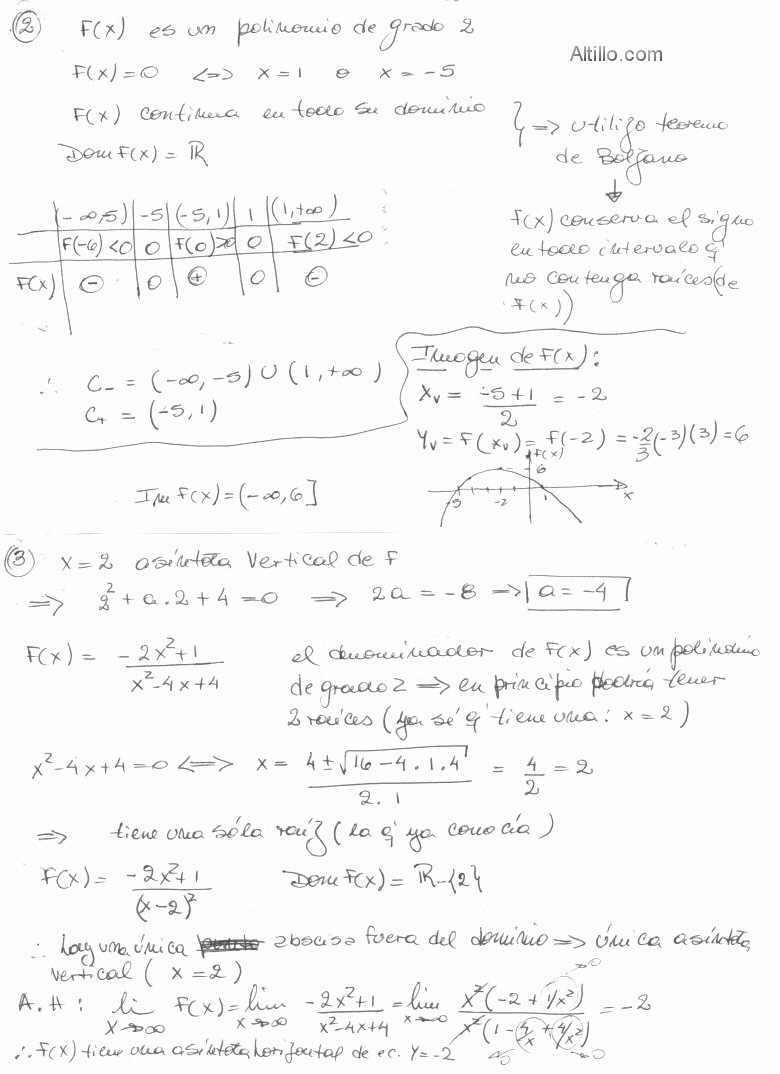 ② F(x) es un polinomio de grado 2
Altillo.com
F(x) = 0 <=> x = 1 o x = -5
F(x) continua en todo su dominio
Dom F(x) = ℝ
} => utilizo teorema
de Bolzano
↓
f(x) conserva el signo
en todo intervalo q'
no contenga raíces (de
F(x))
(-∞,5) | -5 | (-5,1) | 1 | (1,+∞)
F(-6)<0 | 0 | F(0)>0 | 0 | F(2)<0
F(x) | ⊖ | 0 | ⊕ | 0 | ⊖
∴ C₋ = (-∞,-5) ∪ (1,+∞)
C₊ = (-5,1)
Imagen de F(x):
Xᵥ = (-5+1)/2 = -2
Yᵥ = F(xᵥ) = F(-2) = -2/3 (-3)(3) = 6
f(x)
6
-5 -2 1 x
Im F(x) = (-∞,6]
③ x = 2 asíntota vertical de F
=> 2² + a.2 + 4 = 0 => 2a = -8 => a = -4
F(x) = (-2x²+1)/(x²-4x+4)
el denominador de F(x) es un polinomio
de grado 2 => en principio podría tener
2 raíces (ya sé q' tiene una: x = 2)
x²-4x+4 = 0 <=> x = (4 ± √(16-4.1.4))/(2.1) = 4/2 = 2
=> tiene una sóla raíz (la q' ya conocía)
F(x) = (-2x²+1)/(x-2)² Dom F(x) = ℝ-{2}
∴ hay una única abscisa fuera del dominio => única asíntota
vertical (x = 2)
A.H: lim x→∞ F(x) = lim x→∞ (-2x²+1)/(x²-4x+4) = lim x→∞ x²(-2+1/x²)/x²(1-4/x+4/x²) = -2
→0
→0 →0
∴ F(x) tiene una asíntota horizontal de ec. Y = -2